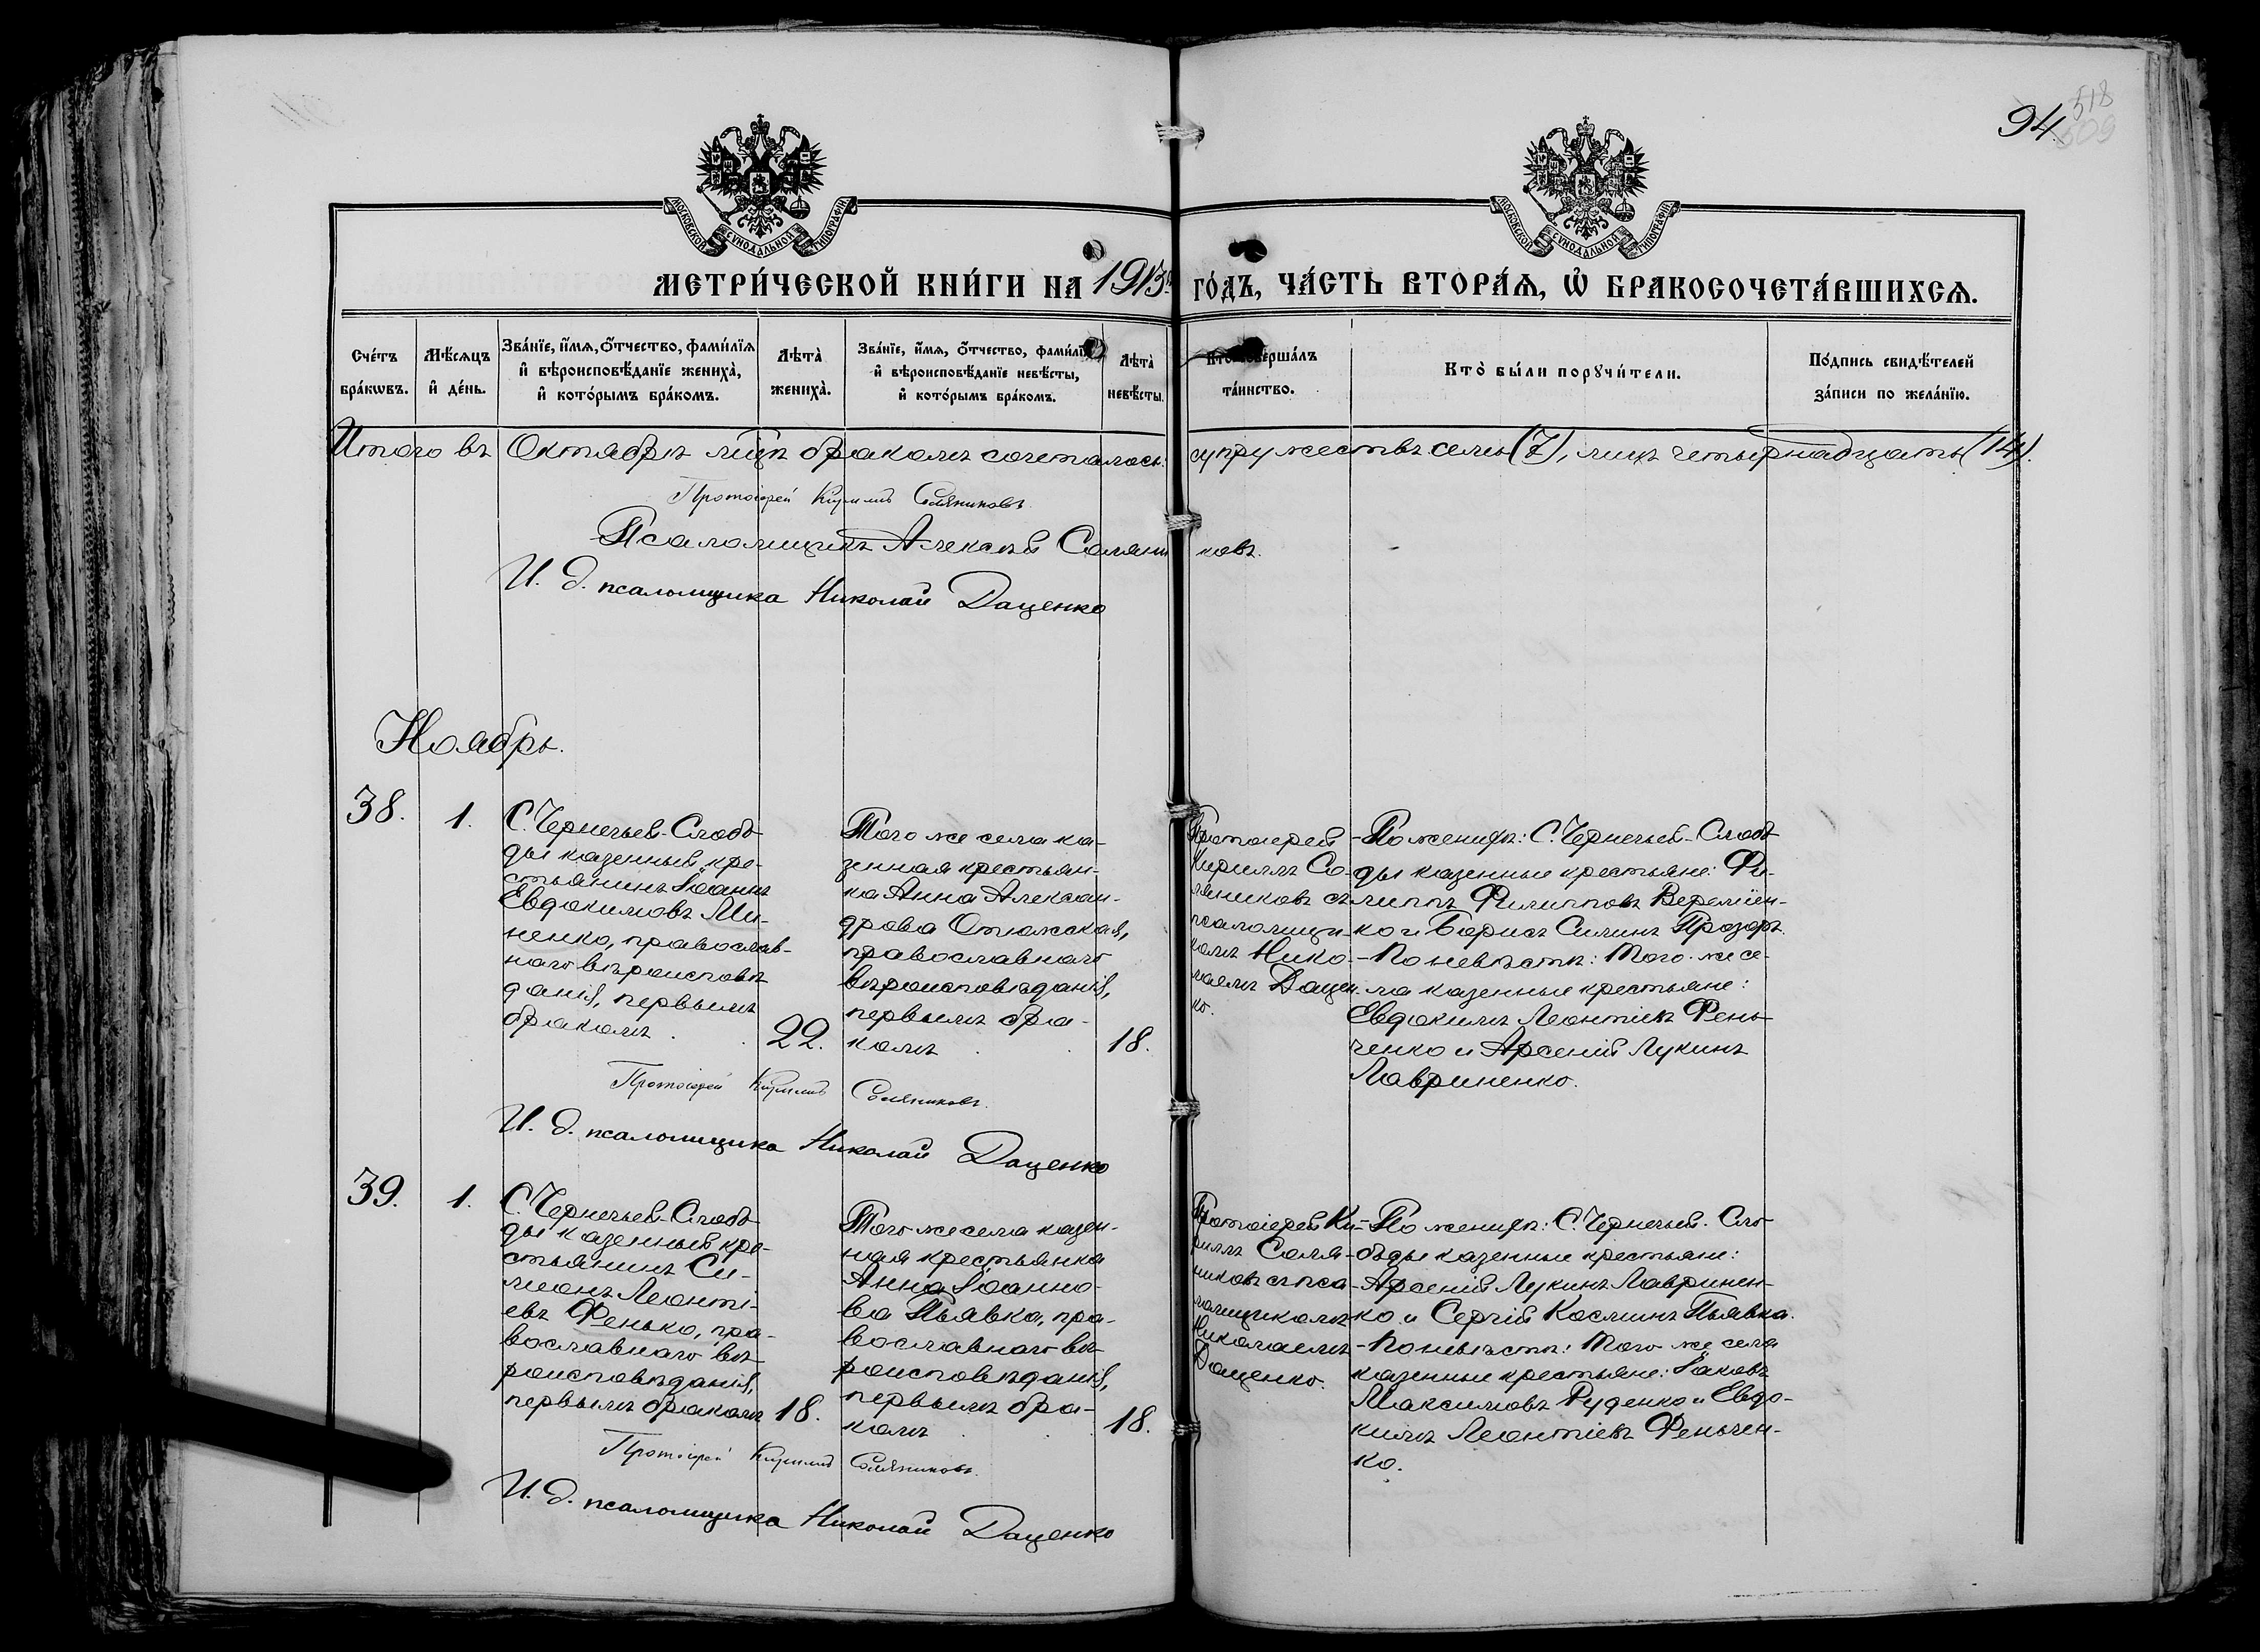 94.
518
509
МОСКОВСКОЙ СѴНОДАЛЬНОЙ ТИПОГРАФІИ
МОСКОВСКОЙ СѴНОДАЛЬНОЙ ТИПОГРАФІИ
МЕТРИ́ЧЕСКОЙ КНИ́ГИ НА 1913й ГО́ДЪ, ЧА́СТЬ ВТОРА́Ѧ, Ѡ҆ БРАКОСОЧЕТА́ВШИХСѦ.
Сче́тъ
бра́кѡвъ.
Мѣ́сѧцъ
и҆ де́нь.
Зва́нїе, и҆́мѧ, ѻ҆́тчество, фами́лїѧ
и҆ вѣроисповѣ́данїе жениха̀,
и҆ кото́рымъ бра́комъ.
Лѣта̀
жениха̀.
Зва́нїе, и҆́мѧ, ѻ҆́тчество, фами́лїѧ
и҆ вѣроисповѣ́данїе невѣ́сты,
и҆ кото́рымъ бра́комъ.
Лѣта̀
невѣ́сты.
Кто̀ соверша́лъ
та́инство.
Кто̀ бы́ли порꙋчи́тели.
По́дпись свидѣ́телей
за́писи по жела́нїю.
Итого въ Октябрѣ мцѣ бракомъ сочеталось: супружествъ семь (7), лицъ четырнадцать (14).
Протоіерей Кириллъ Соляниковъ.
Псаломщикъ Алексѣй Соляниковъ.
И. д. псаломщика Николай Даценко
Ноябрь.
38.
1.
С. Чернечьей-Слобо
ды казенный кре-
стьянинъ Іоаннъ
Евдокимовъ Ми-
ненко, православ-
наго вѣроисповѣ
данія, первымъ
бракомъ
22.
Того же села ка-
зенная крестьян-
ка Анна Алексан-
дрова Отюжская,
православнаго
вѣроисповѣданія,
первымъ бра-
комъ
18.
Протоіерей
Кириллъ Со-
ляниковъ съ
псаломщи-
комъ Нико-
лаемъ Дацен-
ко.
-По женихѣ: С. Чернечьей-Слобо
ды казенные крестьяне: Фи-
липпъ Филипповъ Веремѣен-
ко и Борисъ Силинъ Прозоръ.
-По невѣстѣ: Того-же се-
ла казенные крестьяне:
Евдокимъ Леонтіевъ Фень-
ченко и Арсеній Лукинъ
Лавриненко.
Протоіерей Кириллъ Соляниковъ.
И. д. псаломщика Николай Даценко
39.
1.
С. Чернечьей-Слобо
ды казенный кре-
стьянинъ Си-
меонъ Леонті-
евъ Фенько, пра-
вославнаго вѣ-
роисповѣданія,
первымъ бракомъ
18.
Того же села казен-
ная крестьянка
Анна Іоанно-
ва Пьявка, пра-
вославнаго вѣ-
роисповѣданія,
первымъ бра-
комъ
18.
Протоіерей Ки-
риллъ Соля-
никовъ съ пса-
ломщикомъ
Николаемъ
Даценко.
-По женихѣ: С. Чернечьей-Сло-
боды казенные крестьяне:
Арсеній Лукинъ Лавринен-
ко и Сергій Косминъ Пьявка.
-По невѣстѣ: Того же села
казенные крестьяне: Іаковъ
Максимовъ Руденко и Евдо-
кимъ Леонтіевъ Феньчен-
ко.
Протоіерей Кириллъ Соляниковъ.
И. д. псаломщика Николай Даценко